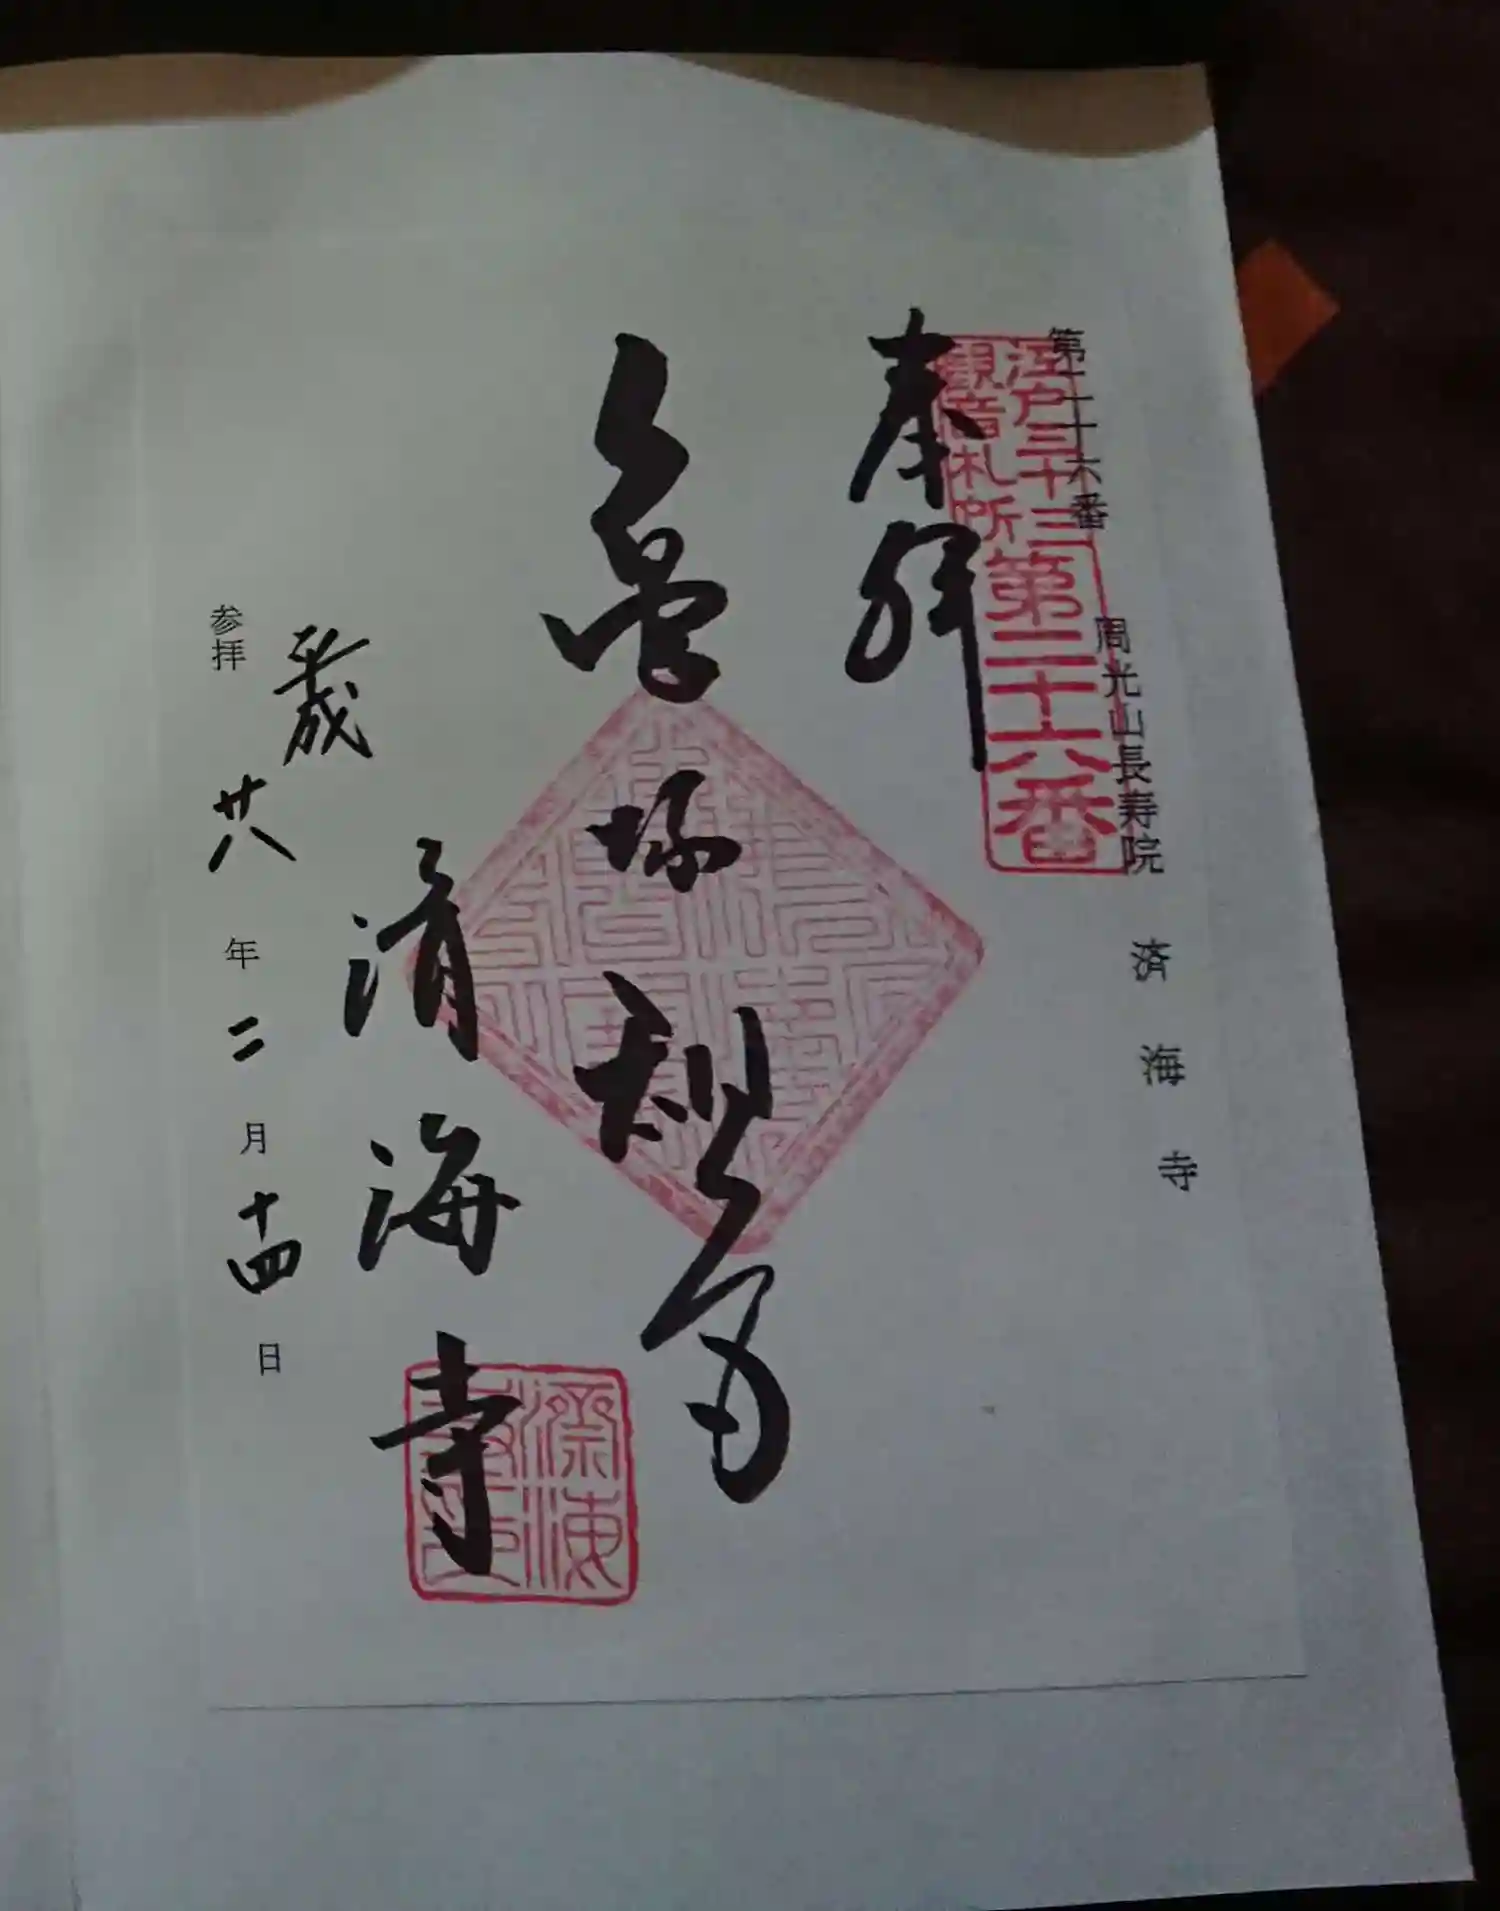 第二十六番 周光山長寿院 済海寺
江戸三十三
観音札所
第二十六番
奉拝
亀塚
済海寺
濟海
参拝 平成廿八年二月十四日